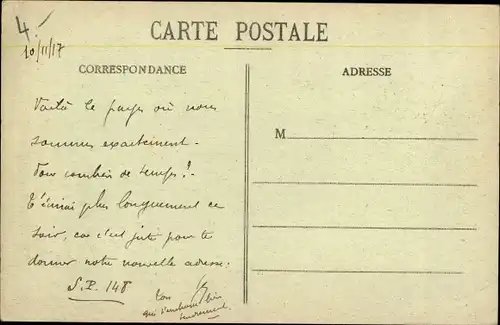 4.-
10/11/17
CARTE POSTALE
CORRESPONDANCE
ADRESSE
M
Voilà le pays où nous
sommes exactement.
Pour combien de temps?-
T'écrirai plus longuement ce
soir, car c'est juste pour te
donner notre nouvelle adresse:
S.P. 148
ton
qui t'embrasse bien
tendrement